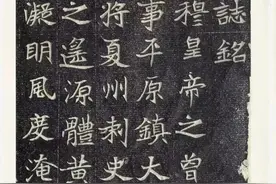 誌銘
穆皇帝之曾
事平原鎮大
將夏州刺史
之遙源體黄
凝明風度淹